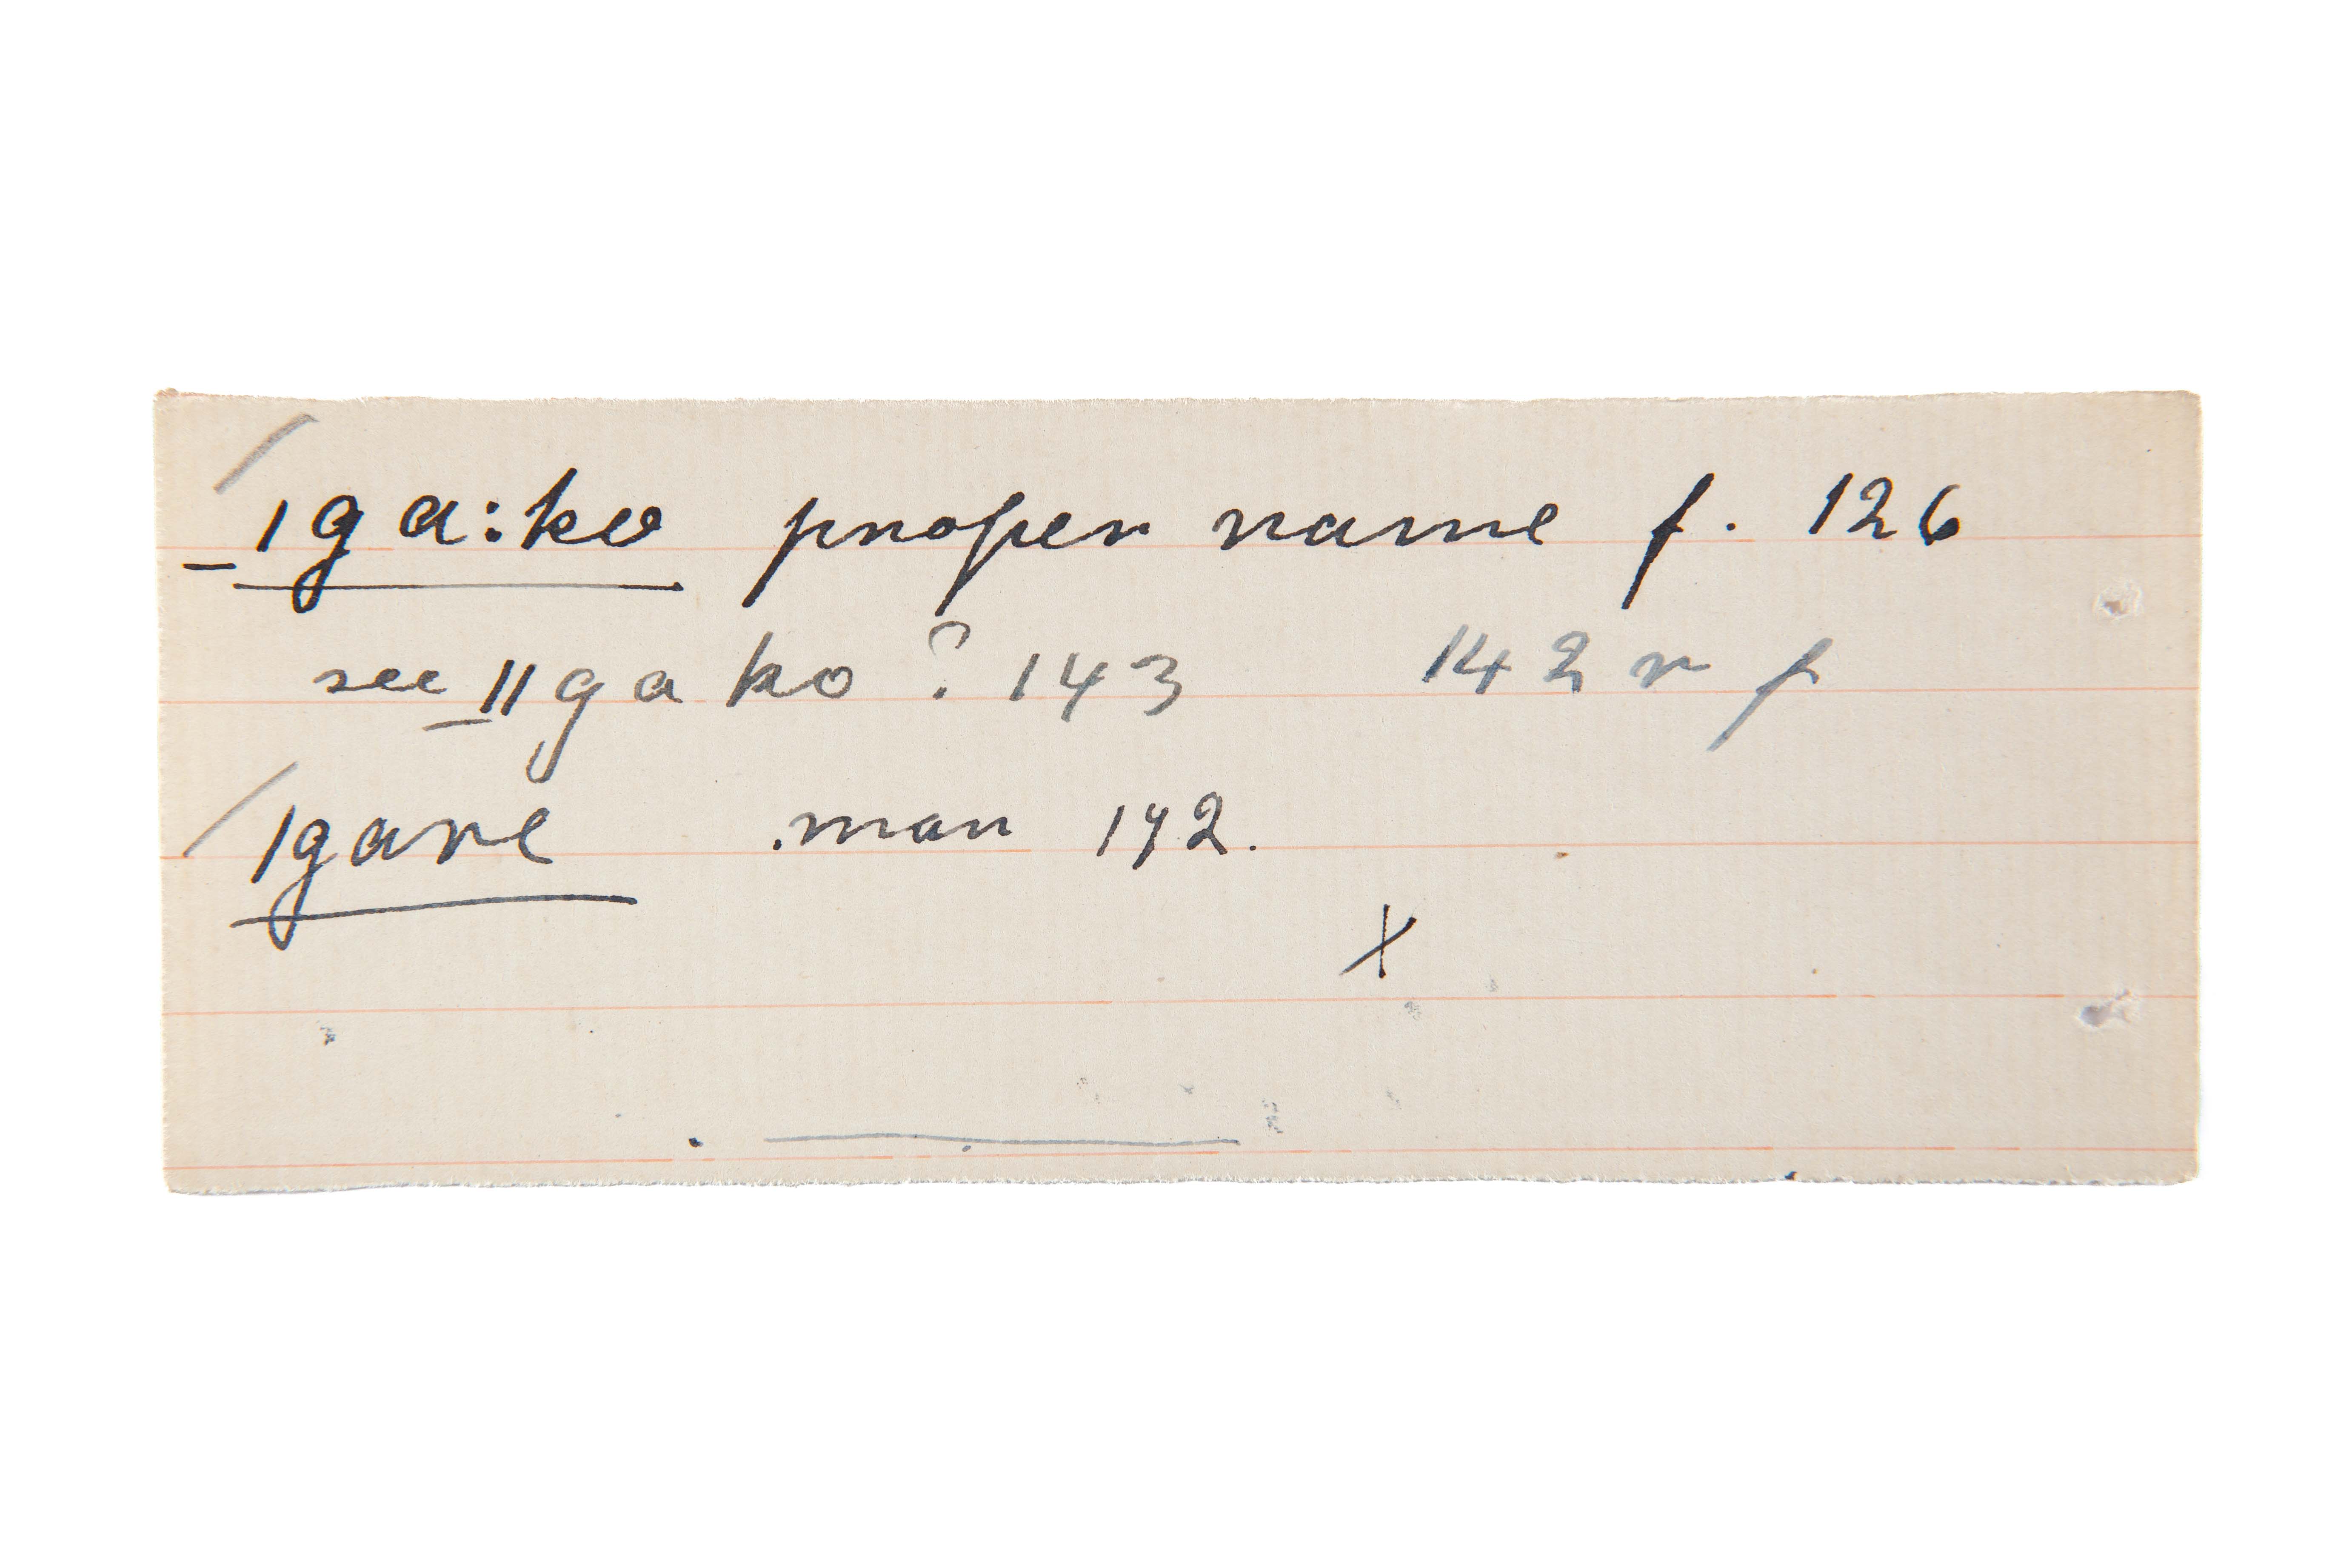 _ǀga:ko proper name f. 126
see _ǁgako ? 143 142 r f
ǀgare .man 142.
X